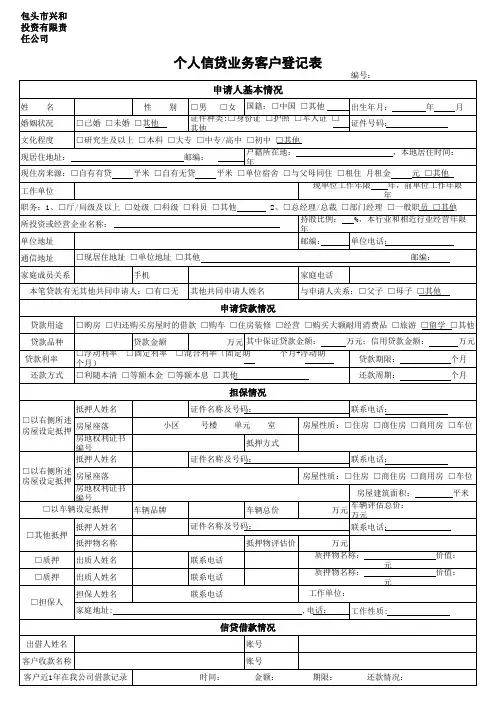 包头市兴和
投资有限责
任公司
个人信贷业务客户登记表
编号:
申请人基本情况
姓 名 性 别 □男 □女 国籍: □中国 □其他 出生年月: 年 月
婚姻状况 □已婚 □未婚 □其他 证件种类:□身份证 □护照 □军人证 □其他 证件号码:
文化程度 □研究生及以上 □本科 □大专 □中专/高中 □初中 □其他
现居住地址: 邮编: 户籍所在地: , 本地居住时间: 年
现住房来源: □自有有贷 平米 □自有无贷 平米 □单位宿舍 □与父母同住 □租住 月租金 元 □其他
工作单位 现单位工作年限 年, 前单位工作年限 年
职务: 1、□厅/局级及以上 □处级 □科级 □科员 □其他 2、□总经理/总裁 □部门经理 □一般职员 □其他
所投资或经营企业名称: 持股比例: %, 本行业和相近行业经营年限 年
单位地址 邮编: 单位电话:
通信地址 □现居住地址 □单位地址 □其他 邮编:
家庭成员关系 手机 家庭电话
本笔贷款有无其他共同申请人: □有□无 其他共同申请人姓名 与申请人关系: □父子 □母子 □其他
申请贷款情况
贷款用途 □购房 □归还购买房屋时的借款 □购车 □住房装修 □经营 □购买大额耐用消费品 □旅游 □留学 □其他
贷款品种 贷款金额 万元 其中保证贷款金额: 万元; 信用贷款金额: 万元
贷款利率 □浮动利率 □固定利率 □混合利率(固定期 个月+浮动期 个月) 贷款期限: 个月
还款方式 □利随本清 □等额本金 □等额本息 □其他 还款周期: 个月
担保情况
□以右侧所述房屋设定抵押 抵押人姓名 证件名称及号码: 联系电话:
房屋座落 小区 号楼 单元 室 房屋性质: □住房 □商住房 □商用房 □车位
房地权利证书编号 抵押方式
□以右侧所述房屋设定抵押 抵押人姓名 证件名称及号码: 联系电话:
房屋座落 房屋性质: □住房 □商住房 □商用房 □车位
房地权利证书编号 房屋建筑面积: 平米
□以车辆设定抵押 车辆品牌 车辆总价 万元 车辆评估总价: 万元
□其他抵押 抵押人姓名 证件名称及号码: 联系电话:
抵押物名称 抵押物评估价 万元
□质押 出质人姓名 联系电话 质押物名称: 价值: 元
□质押 出质人姓名 联系电话 质押物名称: 价值: 元
□担保人 担保人姓名 联系电话 工作单位:
家庭地址: .电话: 工作性质:
信贷借款情况
出借人姓名 账号
客户收款名称 账号
客户近1年在我公司借款记录 时间: 金额: 期限: 还款情况: